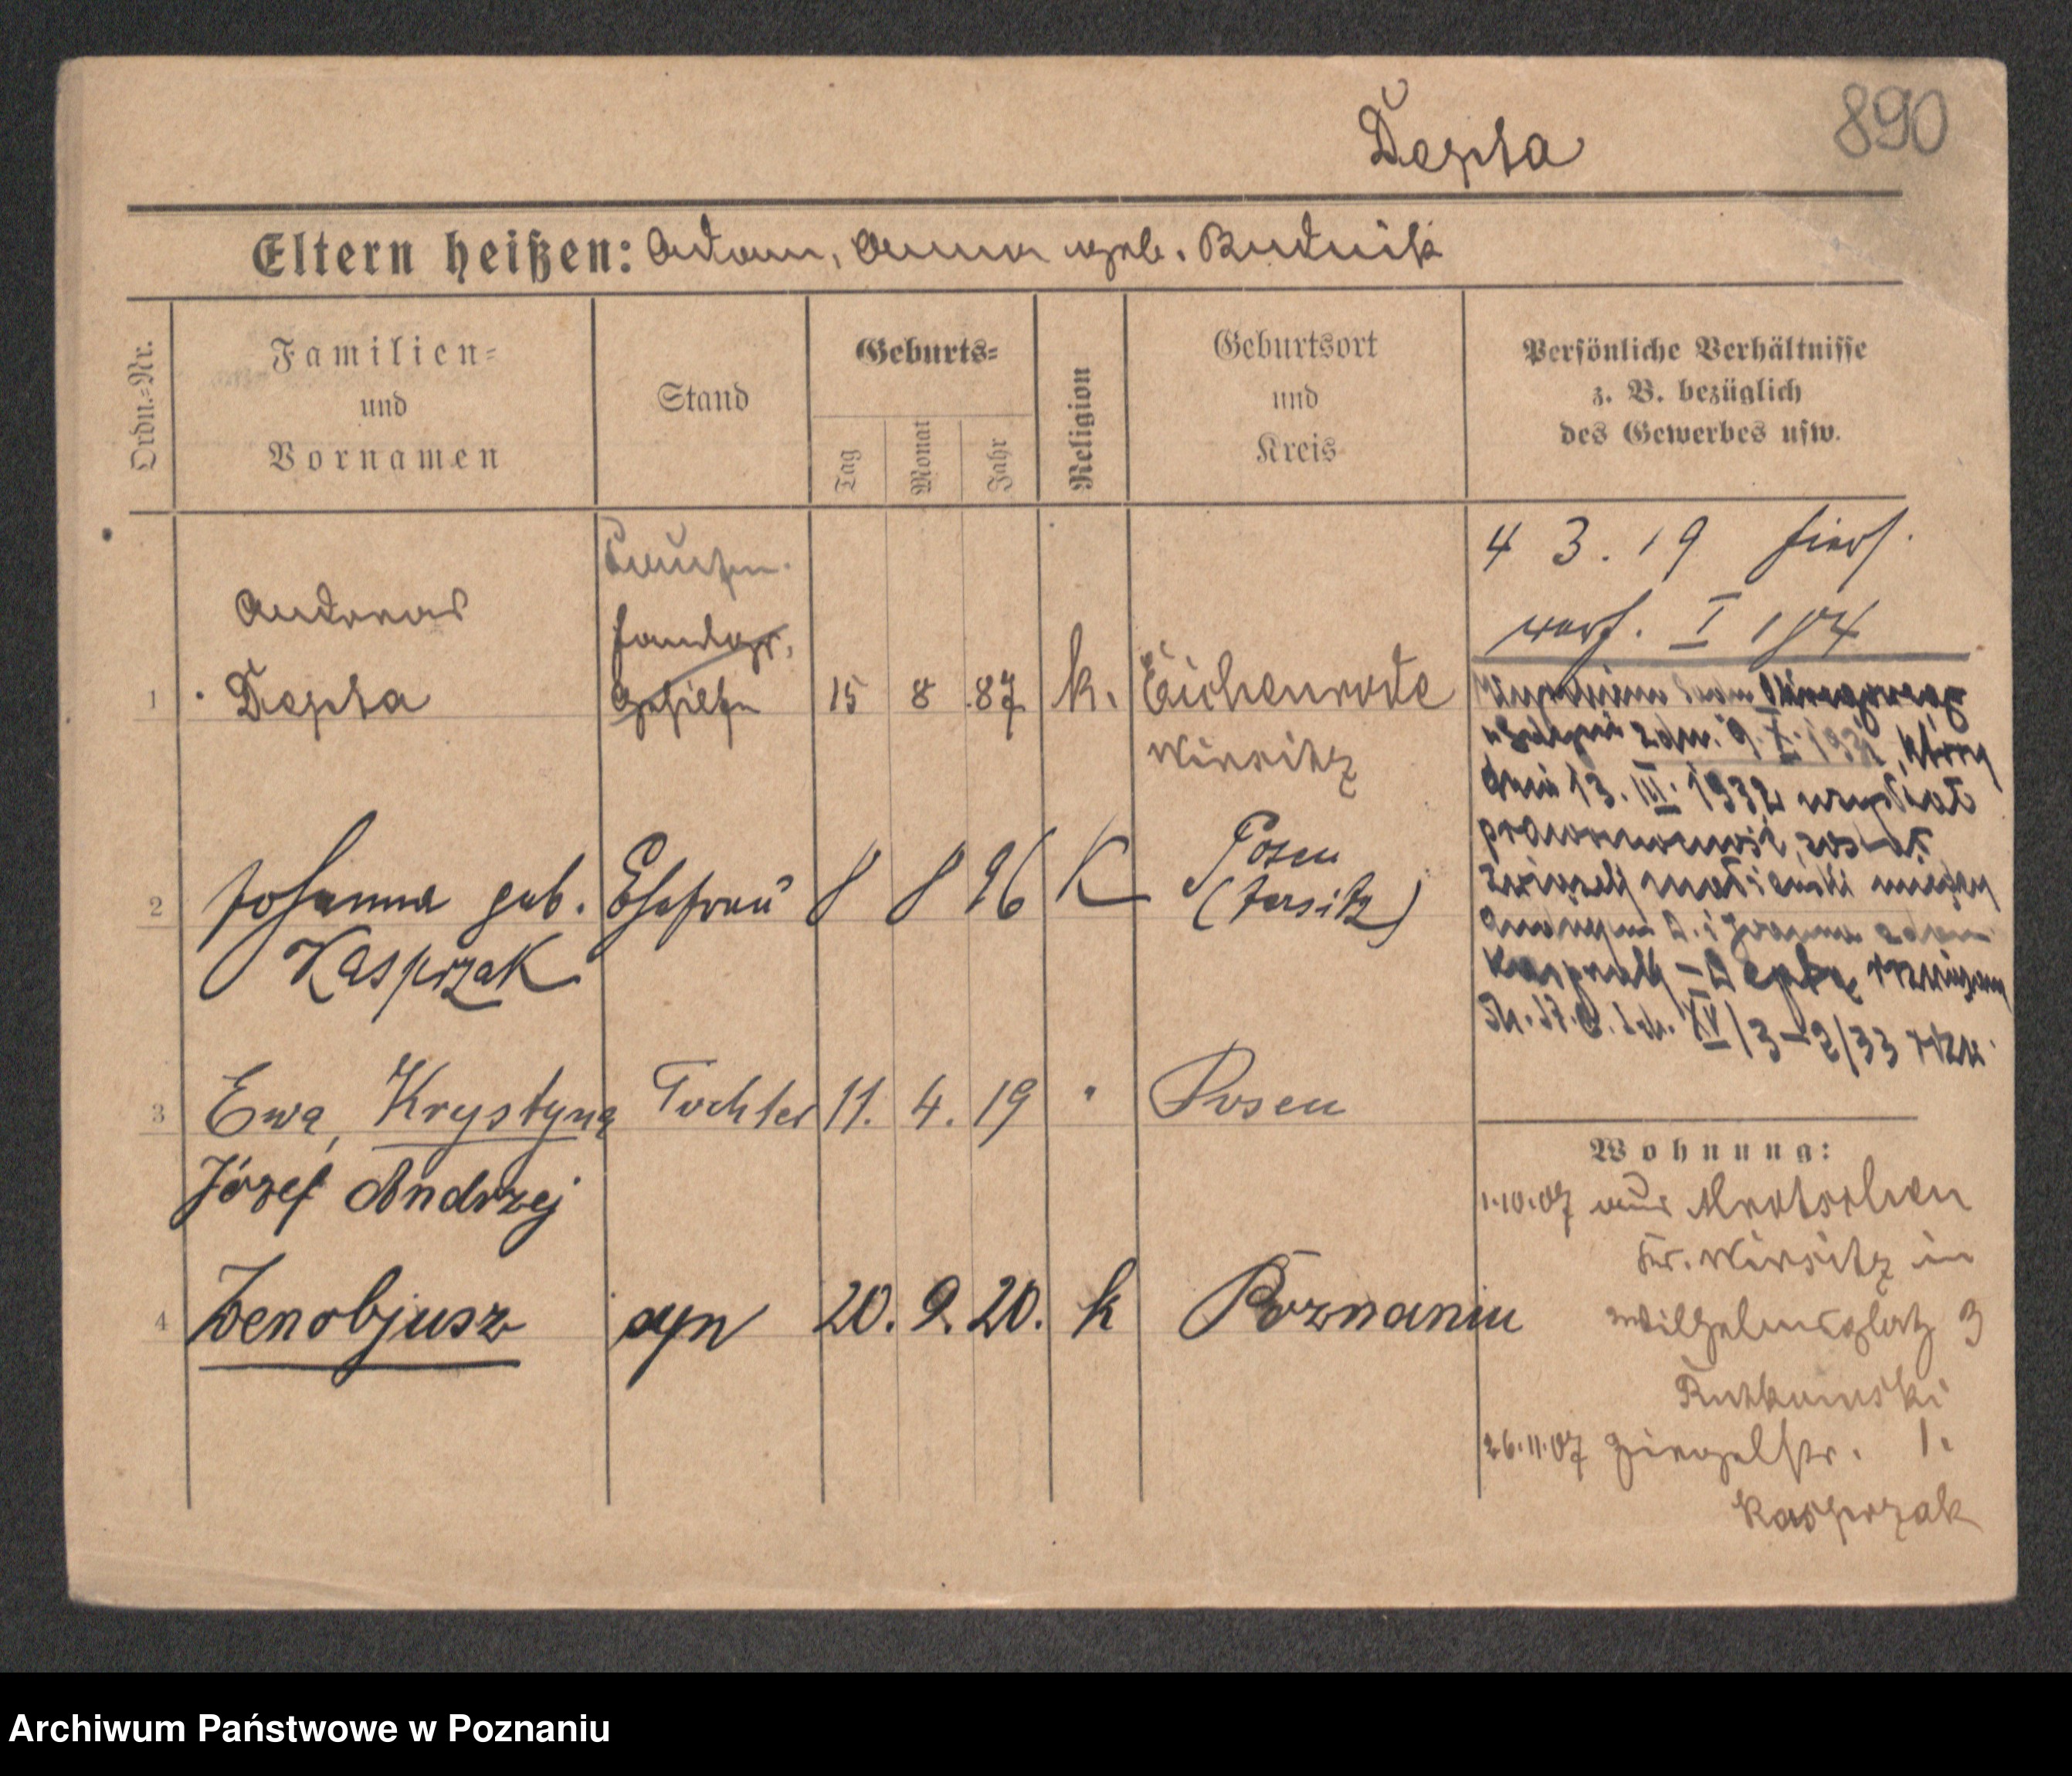 Depta
890
Eltern heißen: Adam, Anna geb. Budnik
Ordn.-Nr.
Familien-
und
Vornamen
Stand
Geburts-
Tag
Monat
Jahr
Religion
Geburtsort
und
Kreis
Persönliche Verhältnisse
z. B. bezüglich
des Gewerbes usw.
1
Andreas
Depta
Kaufm.
Handgs.
Gehilfe
15 8 87
k.
Eichenrode
Wirsitz
4 3.19
2
Johanna geb.
Kasprzak
Ehefrau
8 8 96
K
Posen
(Jersitz)
dnia 13. III. 1932 uzyskał
prawomocność, został
związek małżeński między
Andrzejem D. i Joanną
Kasprzak - Deptą rozwiązany
XV/3-2/33
3
Ewa, Krystyna
Tochter
11. 4. 19
"
Posen
Józef Andrzej
4
Zenobjusz
syn
20. 9. 20.
k
Poznaniu
Wohnung:
1.10.07 aus Mrotschen
Kr. Wirsitz in
Wilhelmsplatz 3
Rutkowski
26.11.07 Ziegelstr. 1.
Kasprzak
Archiwum Państwowe w Poznaniu